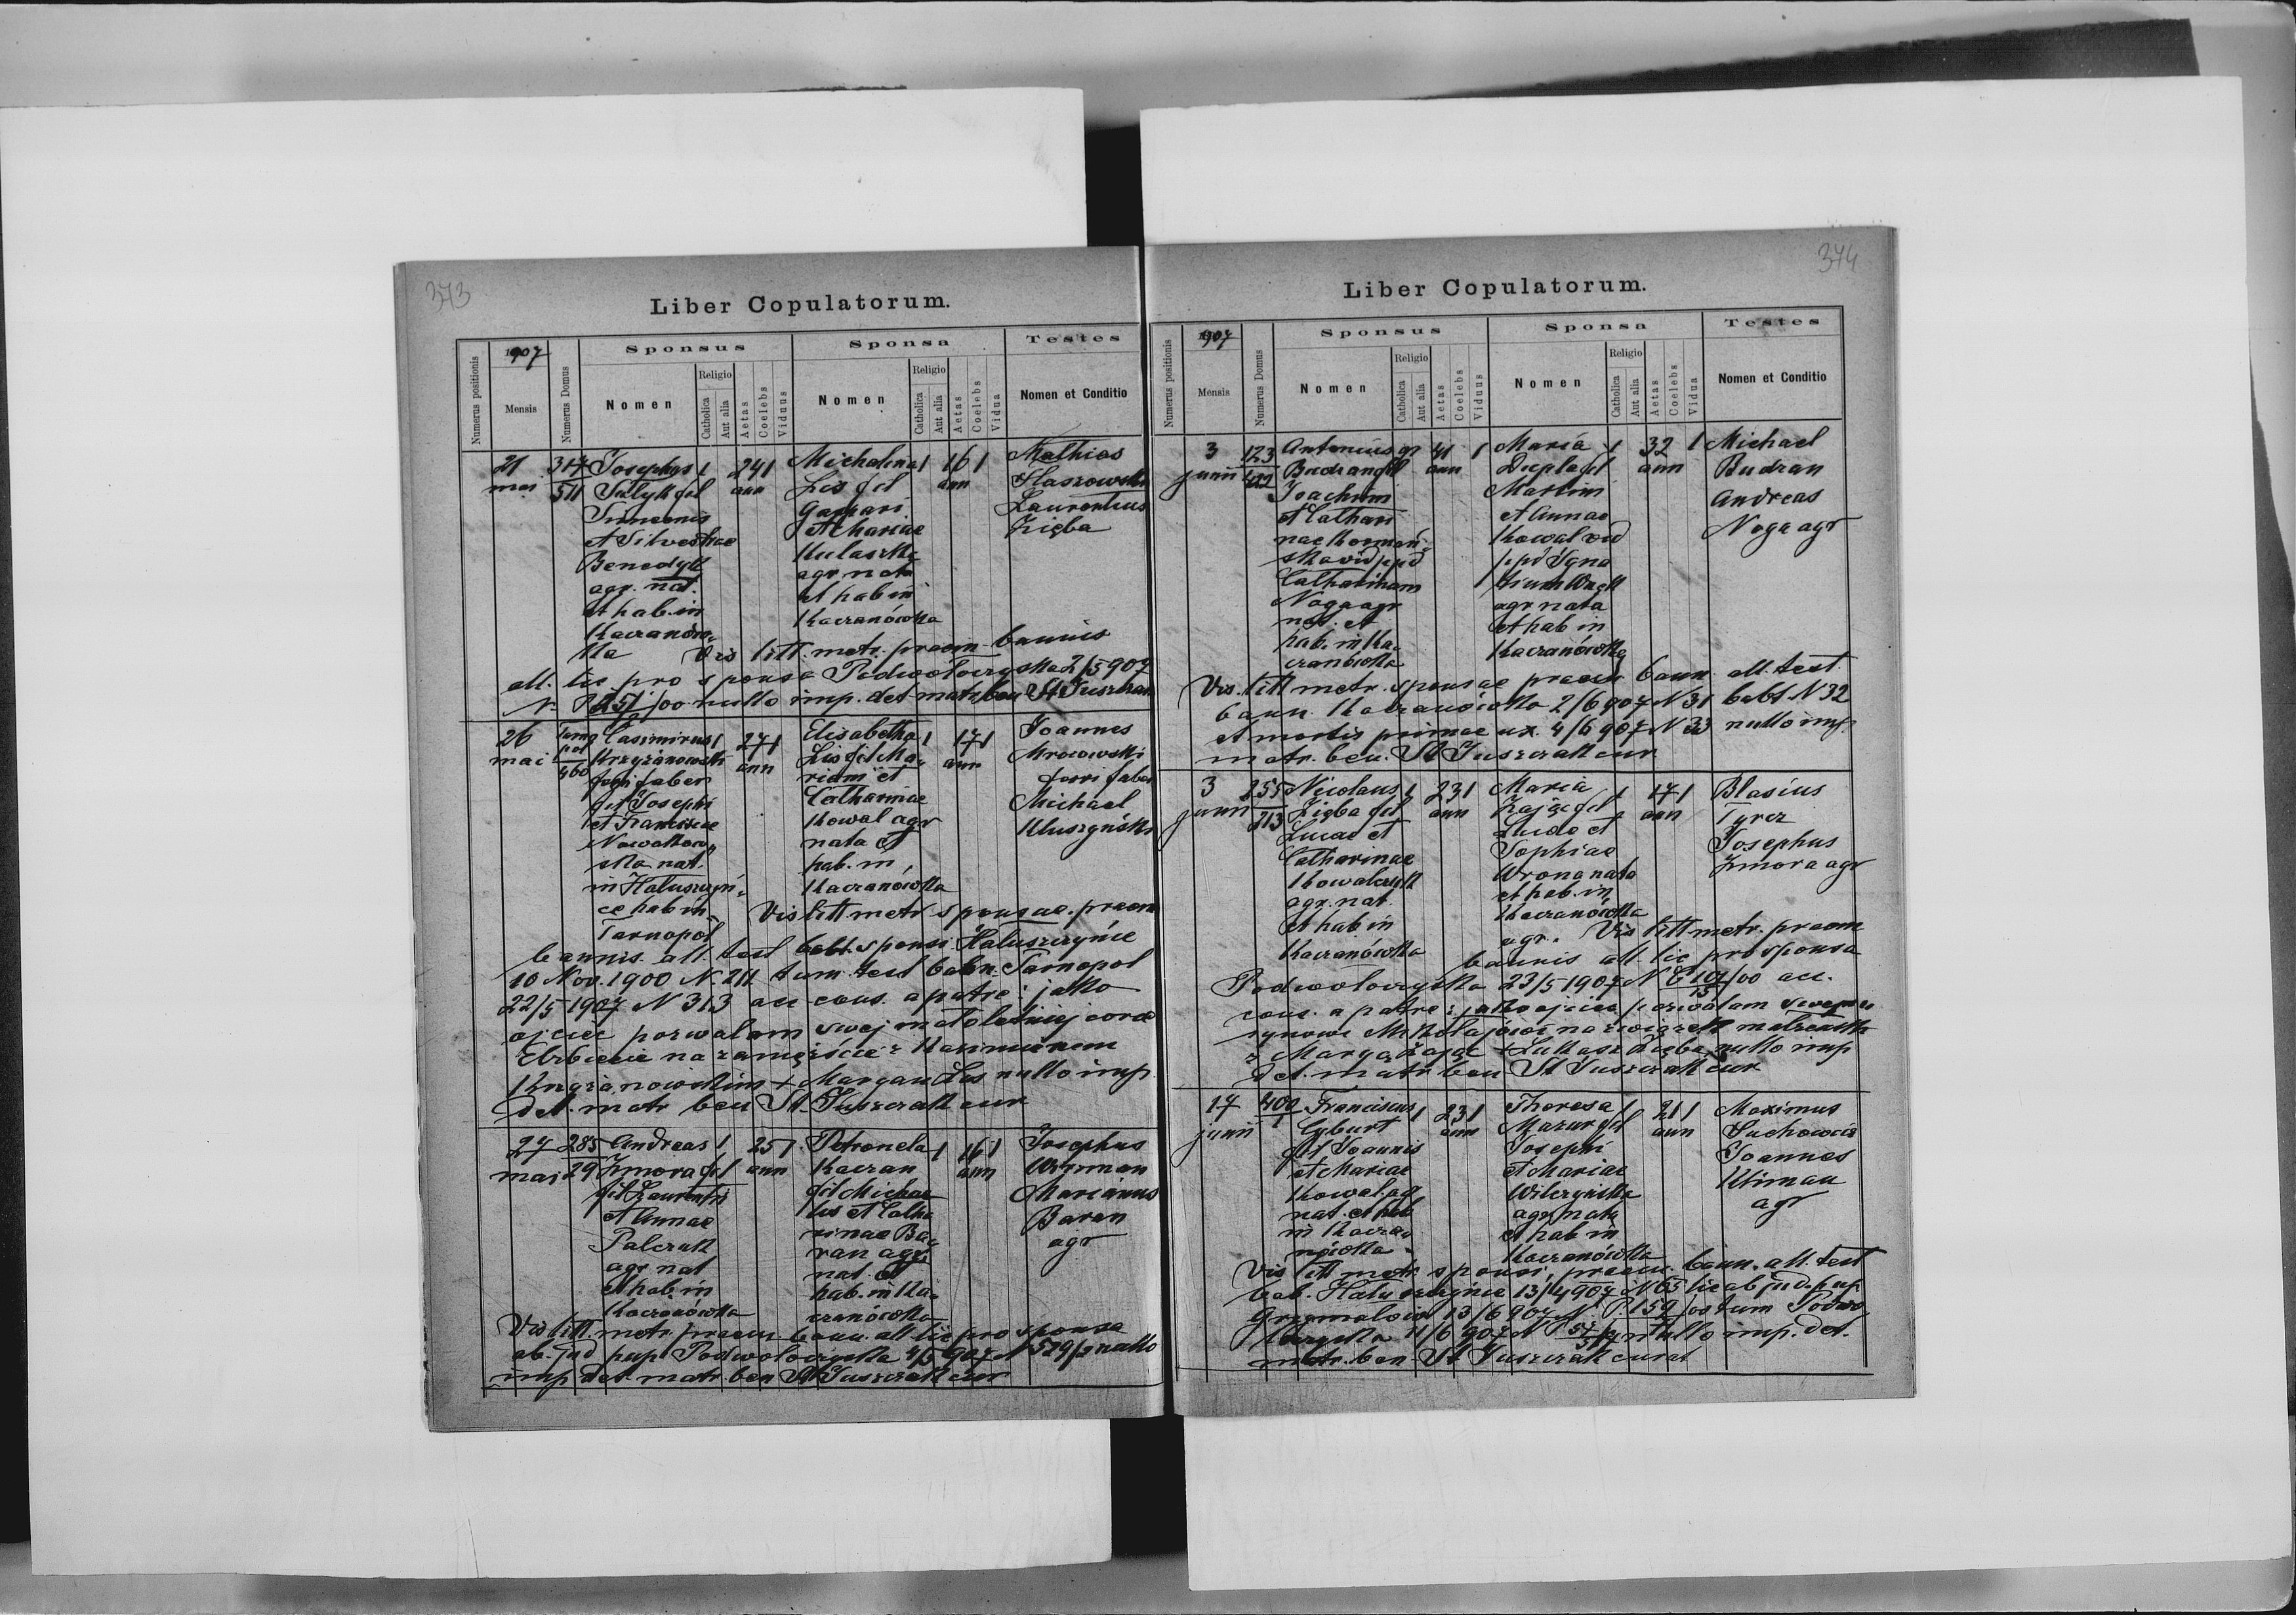 373
Liber Copulatorum.
Numerus positionis
1907
Mensis
Numerus Domus
Sponsus
Nomen
Religio
Catholica
Aut alia
Aetas
Coelebs
Viduus
Sponsa
Nomen
Religio
Catholica
Aut alia
Aetas
Coelebs
Vidua
Testes
Nomen et Conditio
21
mai
317
511
Josephus 1
fil
Simeonis
et Silvestrae
Benedyk
agr. nat.
et hab. in
Kaczanów-
ka
24 1
ann
Michalina 1
Lis fil
Gaspari
et Mariae
Kulaszka
agr. nata
et hab in
Kaczanówka
16 1
ann
Mathias
Laurentius
Zięba
Vis litt. metr. praem. bannis
all. lic pro sponsa Podwołoczyska 2/5 907
N. P 251/00 nullo imp. det matr. ben St Juszczak
26
mai
Tarno
pol
460
Casimirus 1
Krzyżanowski
ferri faber
fil Josephi
et Franciscae
Nowakow-
ska nat.
in Hałuszczyń-
ce hab in
Tarnopol
27 1
ann
Elisabetha 1
Lis fil Ma-
riani et
Catharinae
Kowal agr
nata et
hab. in
Kaczanówka
17 1
ann
Joannes
Mrozowski
ferri faber
Michael
Kluszyński
Vis litt metr sponsae. praem
bannis. all. test bapt sponsi Hałuszczyńce
10 Nov. 1900 N. 211 tum test bann. Tarnopol
22/5 1907 N 313 acc cons. a patre: jako
ojciec pozwalam swej małoletniej córce
Elżbiecie na zamęźście z Kazimierzem
Krzyżanowskim + Maryan Lis nullo imp.
det. matr ben St Juszczak cur
27
mai
285
29
Andreas 1
Zmora fil
fil Laurentii
et Annae
Palczak
agr nat
et hab. in
Kaczanówka
25 1
ann
Petronela 1
Kaczan
fil Michae
lis et Catha
rinae Ba-
ran agr.
nat. et
hab. in Ka-
czanówka
16 1
ann
Josephus
Marianus
Baran
agr
Vis litt. metr. praem. bann. all lic pro sponsa
ab. jud pup. Podwołoczyska 4/5 907 N 529/3 nullo
imp det. matr. ben St Juszczak cur
374
Liber Copulatorum.
Numerus positionis
1907
Mensis
Numerus Domus
Sponsus
Nomen
Religio
Catholica
Aut alia
Aetas
Coelebs
Viduus
Sponsa
Nomen
Religio
Catholica
Aut alia
Aetas
Coelebs
Vidua
Testes
Nomen et Conditio
3
junii
123
Antonius gr
Budzan fil
Joachimi
et Cathari
nae
vid p pd
Catharinam
Noga agr
nat. et
hab. in Ka-
czanówka
41 1
ann
Maria 1
Ciepla fil
Martini
et Annae
Kowal vid
p pd Igna
tium
agr nata
et hab in
Kaczanówka
32 1
ann
Michael
Budzan
Andreas
Noga agr
Vis. litt metr. sponsae praem bann. all. test.
bann Kaczanówka 2/6 907 N 31 bapt N 32
et mortis primae ux. 4/6 907 N 33 nullo imp.
matr. ben. St Juszczak cur.
3
junii
255
213
Nicolaus 1
Zięba fil
Lucae et
Catharinae
Kowalczyk
agr. nat.
et hab in
Kaczanówka
23 1
ann
Maria 1
Zając fil
Lucae et
Sophiae
Wrona nata
et hab. in
Kaczanówka
agr.
17 1
ann
Blasius
Tyrcz
Josephus
Zmora agr
Vis litt metr. praem
bannis all. lic pro sponsa
Podwołoczyska 23/5 1907 N 101/00 acc.
cons. a patre: jako ojciec pozwalam swemu
synowi Mikołajowi na związek małżeński
z Maryą Zając + Łukasz Zięba nullo imp
det. matr ben St Juszczak cur
17
junii
400
1
Franciscus 1
Cyburt
fil Joannis
et Mariae
Kowal. agr
nat. et hab
in Kacza-
nówka
23 1
ann
Theresa 1
Mazur fil
Josephi
et Mariae
Wilczyńska
agr. nata
et hab in
Kaczanówka
21 1
ann
Maximus
Joannes
Kliman
agr
Vis litt metr sponsi, praem. bann. all. test
bab. Hałuszczyńce 13/4 907 N 65 lic ab jud. pup
Grzymałow 13/6 907 N P. 159 tum Podwo-
łoczyska 11/6 907 N nullo imp. det.
matr. ben St Juszczak curat